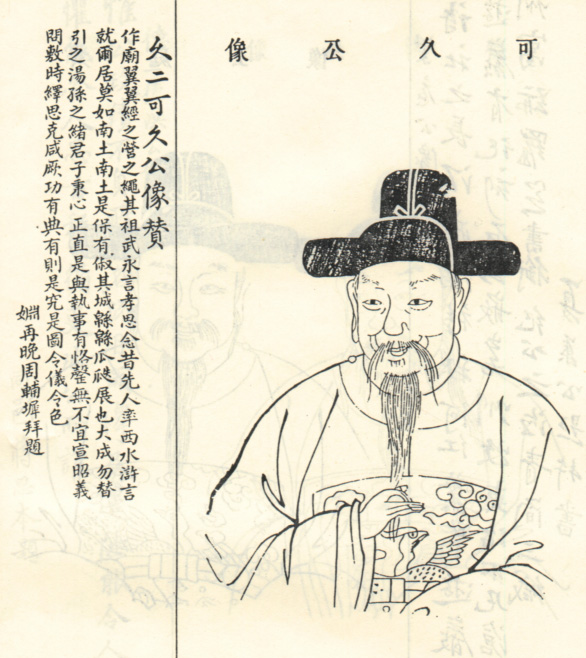 可久公像
久二可久公像贊
作廟翼翼經之營之繩其祖武永言孝思念昔先人率西水滸言
就爾居莫如南土南土是保有俶其城緜緜瓜瓞展也大成勿替
引之湯孫之緒君子秉心正直是與執事有恪罄無不宜宣昭義
問敷時繹思克咸厥功有典有則是究是圖令儀令色
姻再晚周輔墀拜題